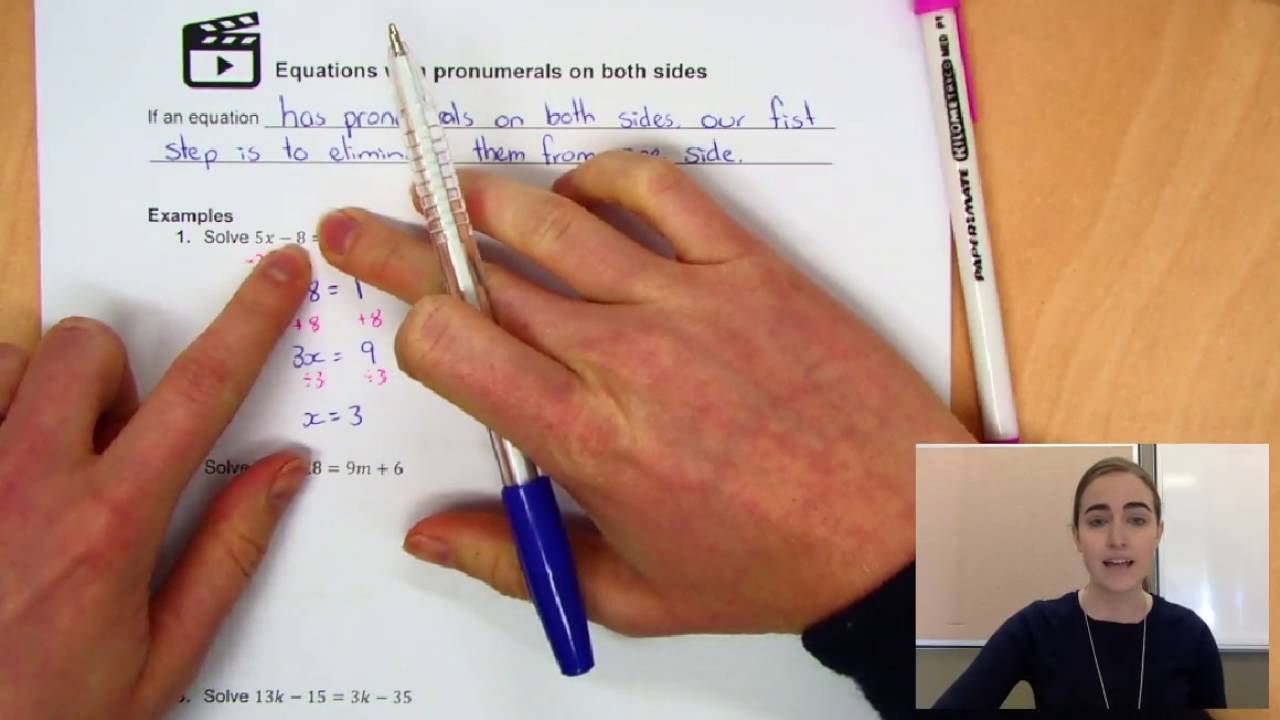 Equations pronumerals on both sides
If an equation has on both sides, our fist
step is to them from side.
Examples
1. Solve 5x – 8 =
8 = 1
+8 +8
3x = 9
÷3 ÷3
x = 3
Solve 8 = 9m + 6
Solve 13k – 15 = 3k – 35
PAPERMATE KILOMETRICO MED PT